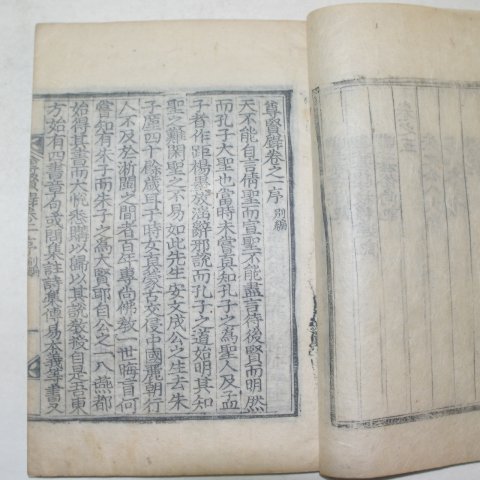 尊賢錄卷之一序 別編
天不能自言倩聖而宣聖不能盡言待後賢而明然
而孔子大聖也當時未嘗眞知孔子之爲聖人及孟
子者作距楊墨放淫辭邪說而孔子之道始明其知
聖之難閑聖之不易如此先生安文成公之生去朱
子應四十餘歲耳于時女眞蒙古交侵中國麗朝行
人不及於浙閩之間者百年專尙佛敎一世晦盲何
嘗知有朱子而朱子之爲大賢耶自公之一入燕都
始得其書而大悅悉購以歸以其說敎授自是吾東
方始有四書章句或問集註詩集傳易本義等書又
尊賢錄卷之一序 別編